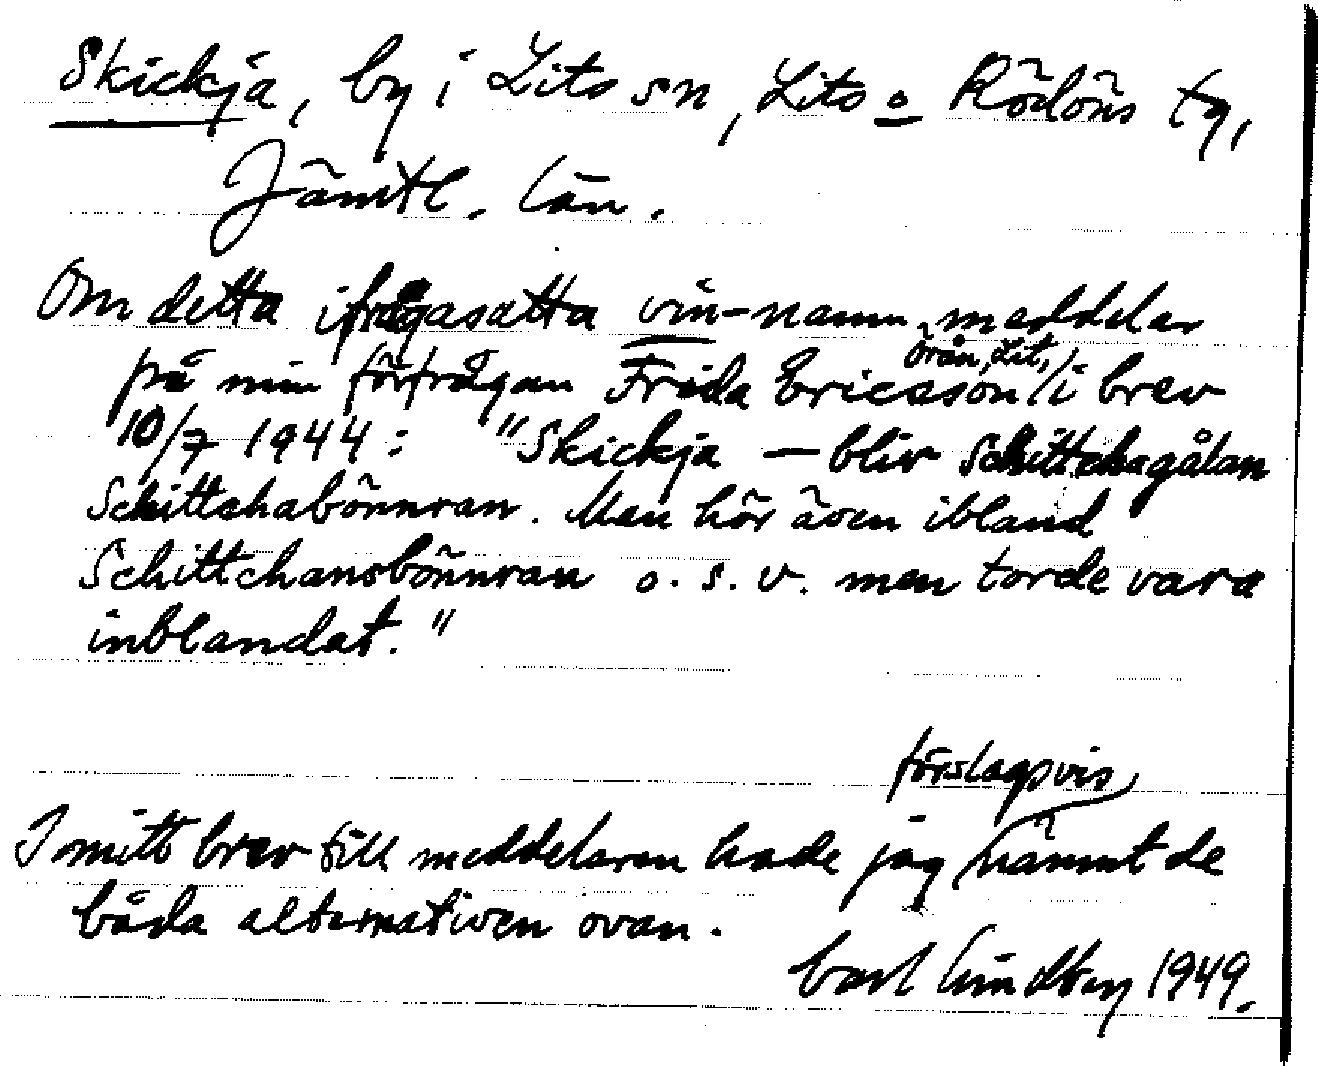 Skickja, by i Lits sn, Lits o Rödöns tg,
Jämtl. län.
Om detta ifrågasatta vin-namn meddelar
på min förfrågan Frida Ericsson / Örån, Lit, / i brev
10/7 1944: "Skickja — bliv Schittchagålan
Schittchabönnran. Men hör även ibland
Schittchansbönnran o. s. v. men torde vara
inblandat."
I mitt brev till meddelaren hade jag förslagsvis nämnt de
båda alternativen ovan.
Carl Lindberg 1949.